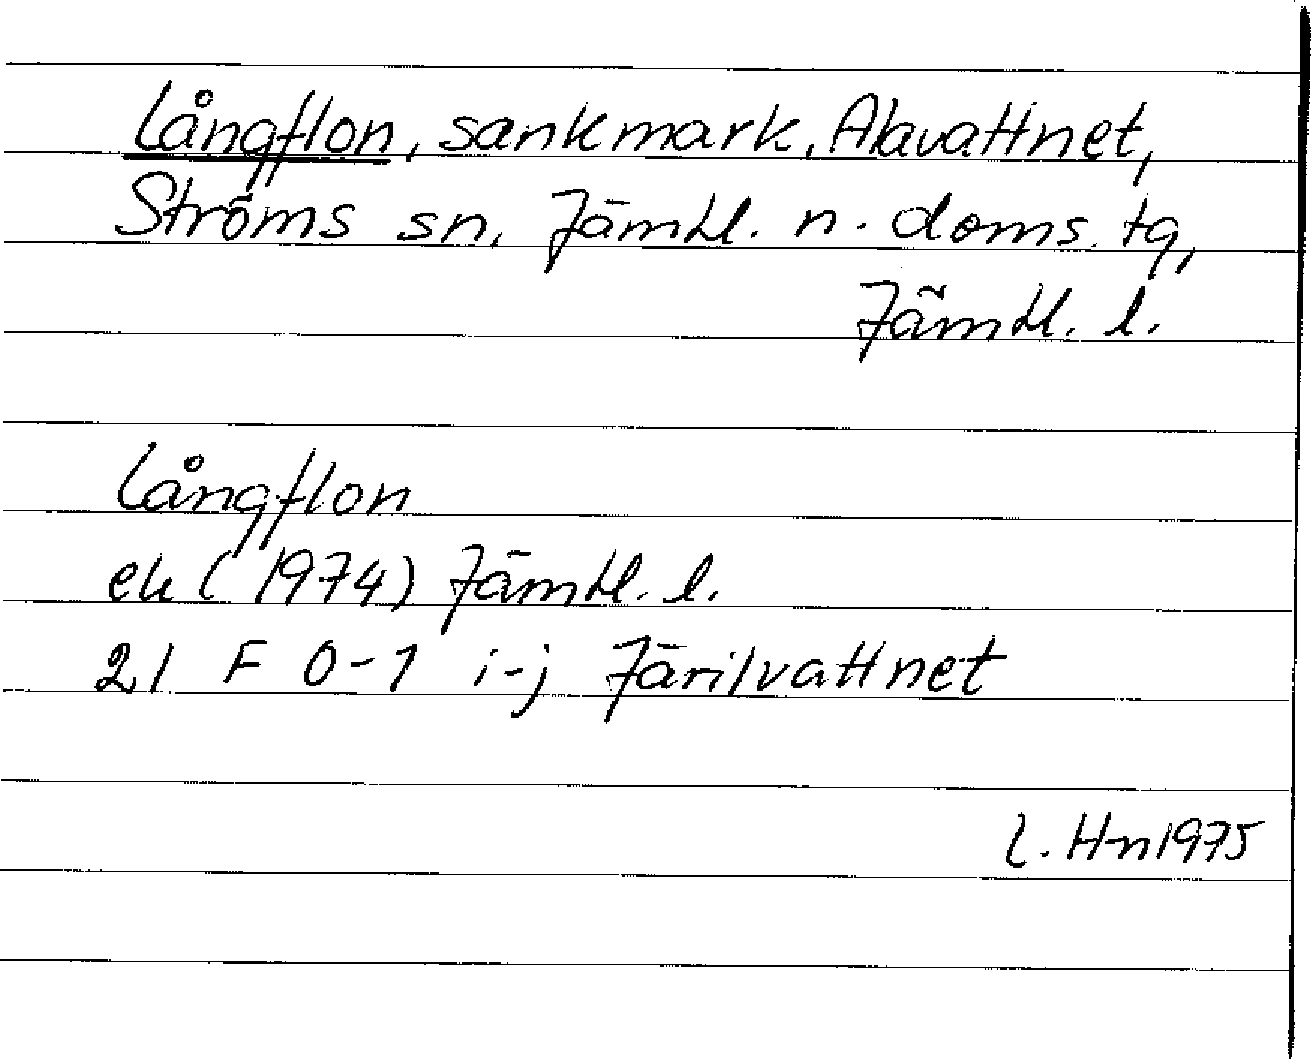 Långflon, sankmark, Alavattnet,
Ströms sn, Jämtl. n. doms. tg,
Jämtl. l.
Långflon
ek (1974) Jämtl. l.
21 F 0-1 i-j Järilvattnet
L. H-n 1975